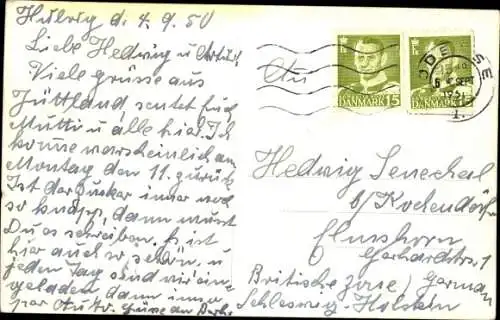 Hulvig d. 4.9.50
Liebe Hedwig u Artur
Viele grüsse aus
Jüttland, sentet Euch
Mutti u alle hier. Ich
komme warscheinlich am
Montag den 11. zurück
Ist der Zucker immer noch
so knapp, dann musst
Du es schreiben. Es ist
hier auch so schön, u
jeden Tag sind wir ein-
geladen, dann immer
per Auto.
An
DANMARK 15
DANMARK 15
ODENSE
SEPT
1.
Hedwig Senechal
b/ Kochendörf
Elmshorn
Gerhardstr. 1
Britische Zone) German
Schleswig-Holstein